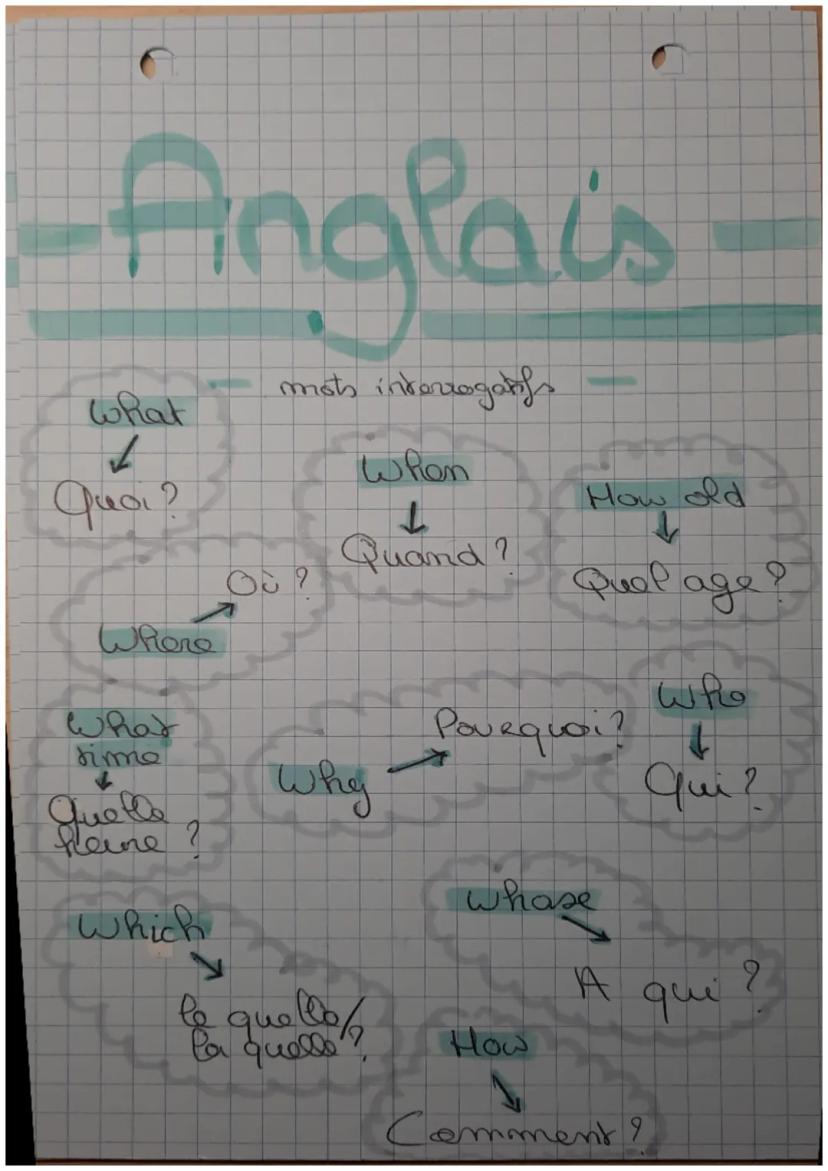 Anglais
mots interrogatifs
What
Quoi ?
When
Quand ?
How old
Quel age ?
Où ?
Where
What
time
Quelle
heure ?
Why
Pourquoi ?
Who
Qui ?
Which
le quelle/
la quelle ?
Whose
A qui ?
How
Comment ?